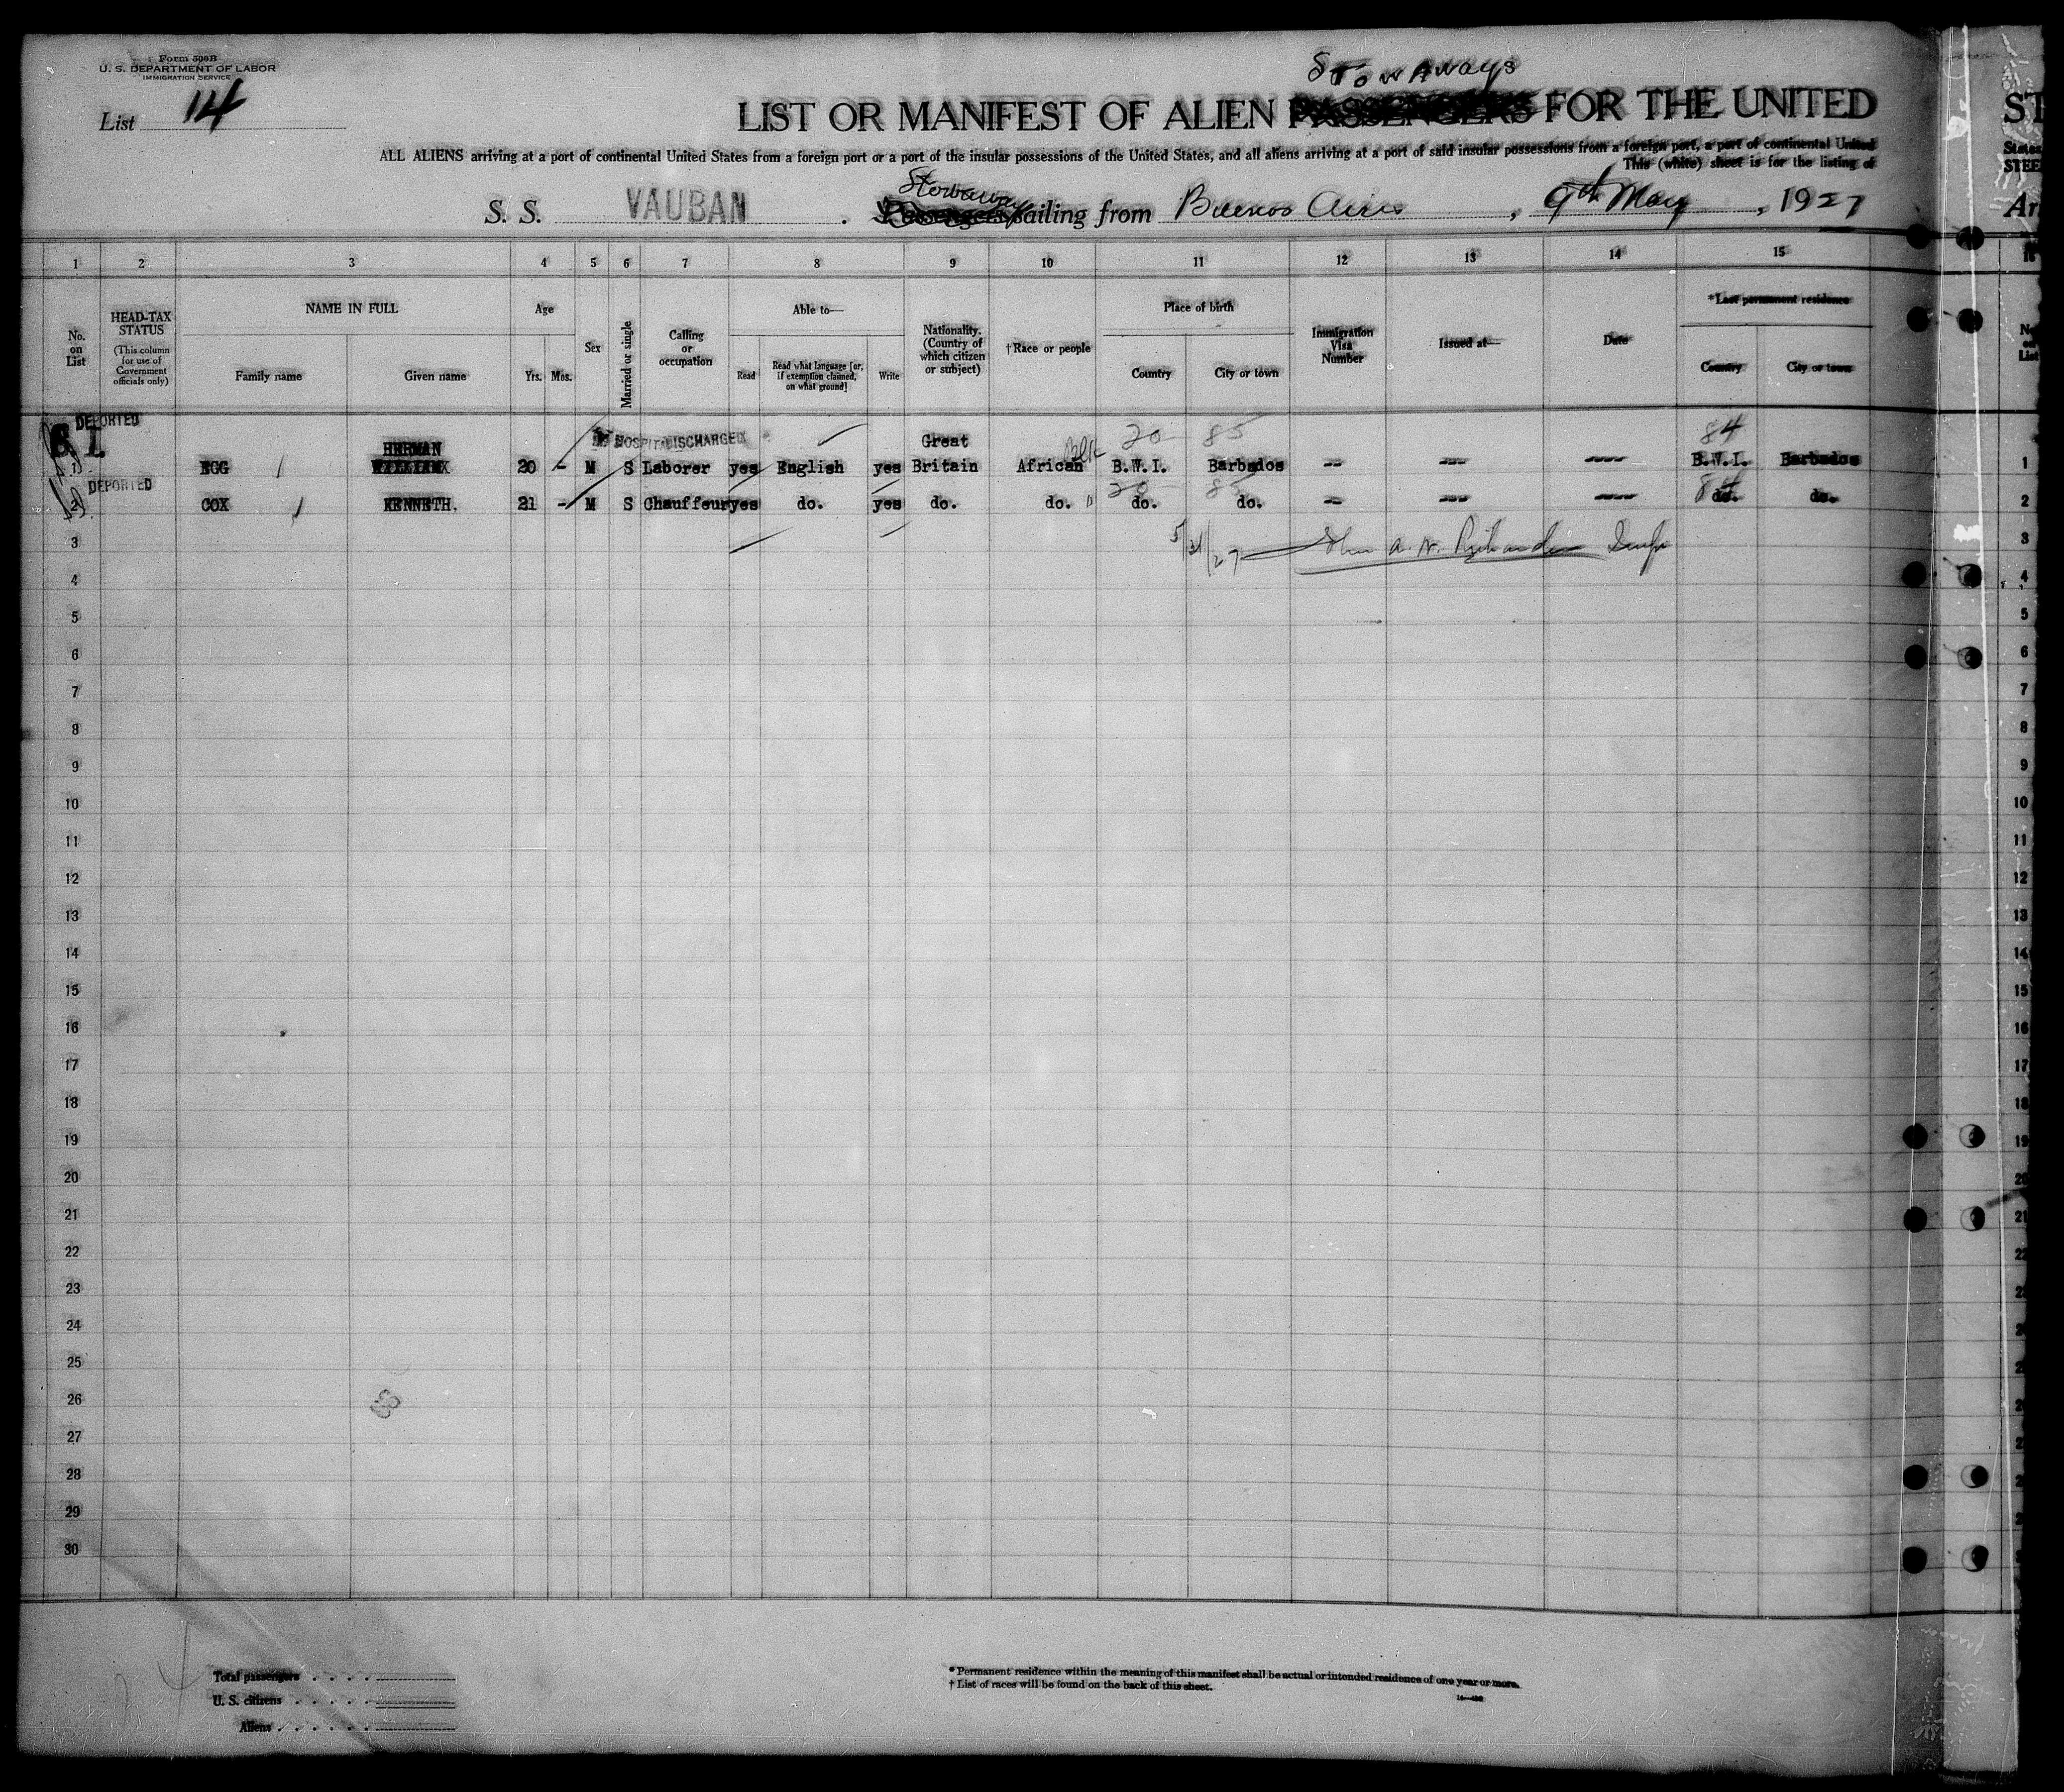 Form 500B
U. S. DEPARTMENT OF LABOR
IMMIGRATION SERVICE
List 14
Stowaways
LIST OR MANIFEST OF ALIEN PASSENGERS FOR THE UNITED ST
ALL ALIENS arriving at a port of continental United States from a foreign port or a port of the insular possessions of the United States, and all aliens arriving at a port of said insular possessions from a foreign port, a port of continental United States
This (white) sheet is for the listing of STEE
Stowaways
S. S. VAUBAN . Passengers sailing from Buenos Aires , 9th May , 1927 Ar
1 2 3 4 5 6 7 8 9 10 11 12 13 14 15 16
No. on List
HEAD-TAX STATUS
(This column for use of Government officials only)
NAME IN FULL
Family name Given name
Age
Yrs. Mos.
Sex
Married or single
Calling or occupation
Able to—
Read Read what language [or, if exemption claimed, on what ground] Write
Nationality. (Country of which citizen or subject)
†Race or people
Place of birth
Country City or town
Immigration Visa Number
Issued at—
Date
*Last permanent residence
Country City or town
No. on List
DEPORTED
HOSPIT DISCHARGED
HERMAN Great 20 85 84
1 EGG WILLIAMX 20 - M S Laborer yes English yes Britain African Blk B.W.I. Barbados -- --- ---- B.W.I. Barbados 1
DEPORTED
20 85 84
2 COX KENNETH. 21 - M S Chauffeur yes do. yes do. do. " do. do. -- --- ---- do. do. 2
3 5/31/27 3
4 4
5 5
6 6
7 7
8 8
9 9
10 10
11 11
12 12
13 13
14 14
15 15
16 16
17 17
18 18
19 19
20 20
21 21
22 22
23 2
24 2
25 2
26 2
27 2
28 2
29 2
30
33
Total passengers . . . .
U. S. citizens . . . . . .
Aliens . . . . . .
* Permanent residence within the meaning of this manifest shall be actual or intended residence of one year or more.
† List of races will be found on the back of this sheet.